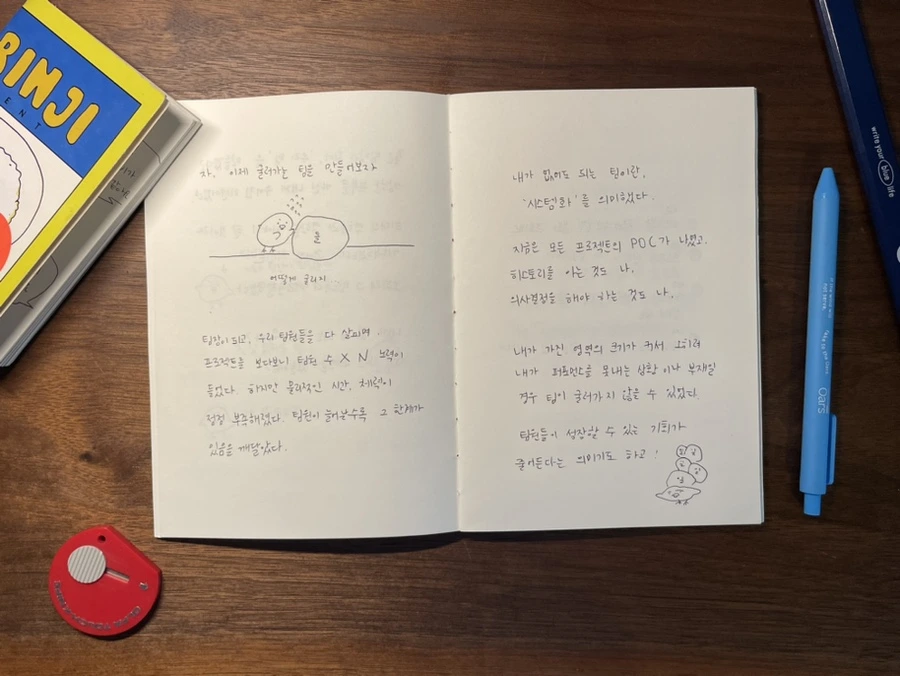 BINJI
ENT
자, 이제 굴러가는 팀을 만들어보자
돌
어떻게 굴리지
팀장이 되고, 우리 팀원들을 다 살피며,
프로젝트를 보다보니 팀원 수 X N 노력이
들었다. 하지만 물리적인 시간, 체력이
점점 부족해졌다. 팀원이 늘어날수록 그 한계가
있음을 깨달았다.
내가 없어도 되는 팀이란,
'시스템화'를 의미했다.
지금은 모든 프로젝트의 POC가 나였고,
히스토리를 아는 것도 나,
의사결정을 해야 하는 것도 나,
내가 가진 영역의 크기가 커서, 오히려
내가 퍼포먼스를 못내는 상황이나 부재일
경우 팀이 굴러가지 않을 수 있었다.
팀원들이 성장할 수 있는 기회가
줄어든다는 의미기도 하고!
write your enjoy life